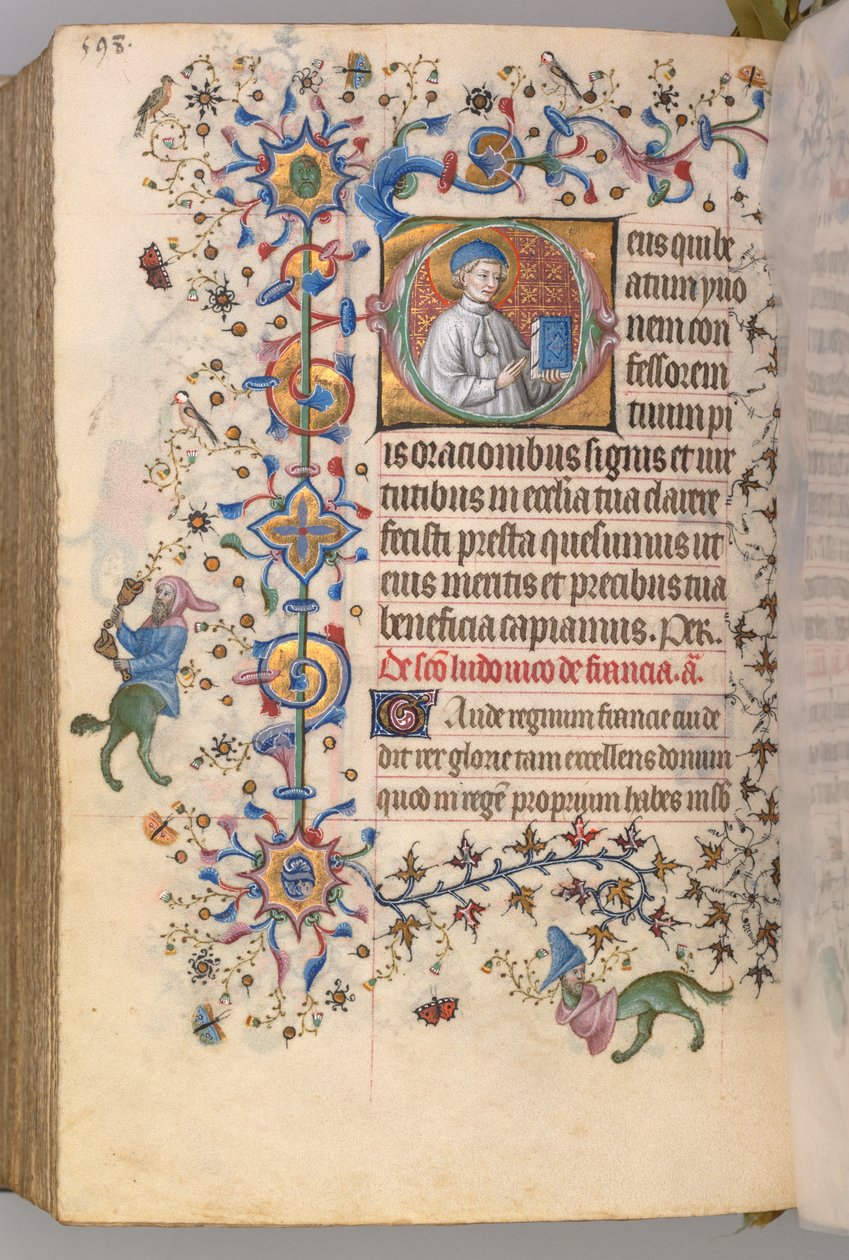 598.
eus qui be
atum yuo
nem con
fessorem
tuum pi
is oracionibus signis et uir
tutibus in ecclia tua clarere
fecisti presta quesumus ut
eius meritis et precibus tua
beneficia capiamus. Per.
De sco ludouico de francia. a.
Gaude regnum francie cui de
dit rex glorie tam excellens donum
quod in rege proprium habes